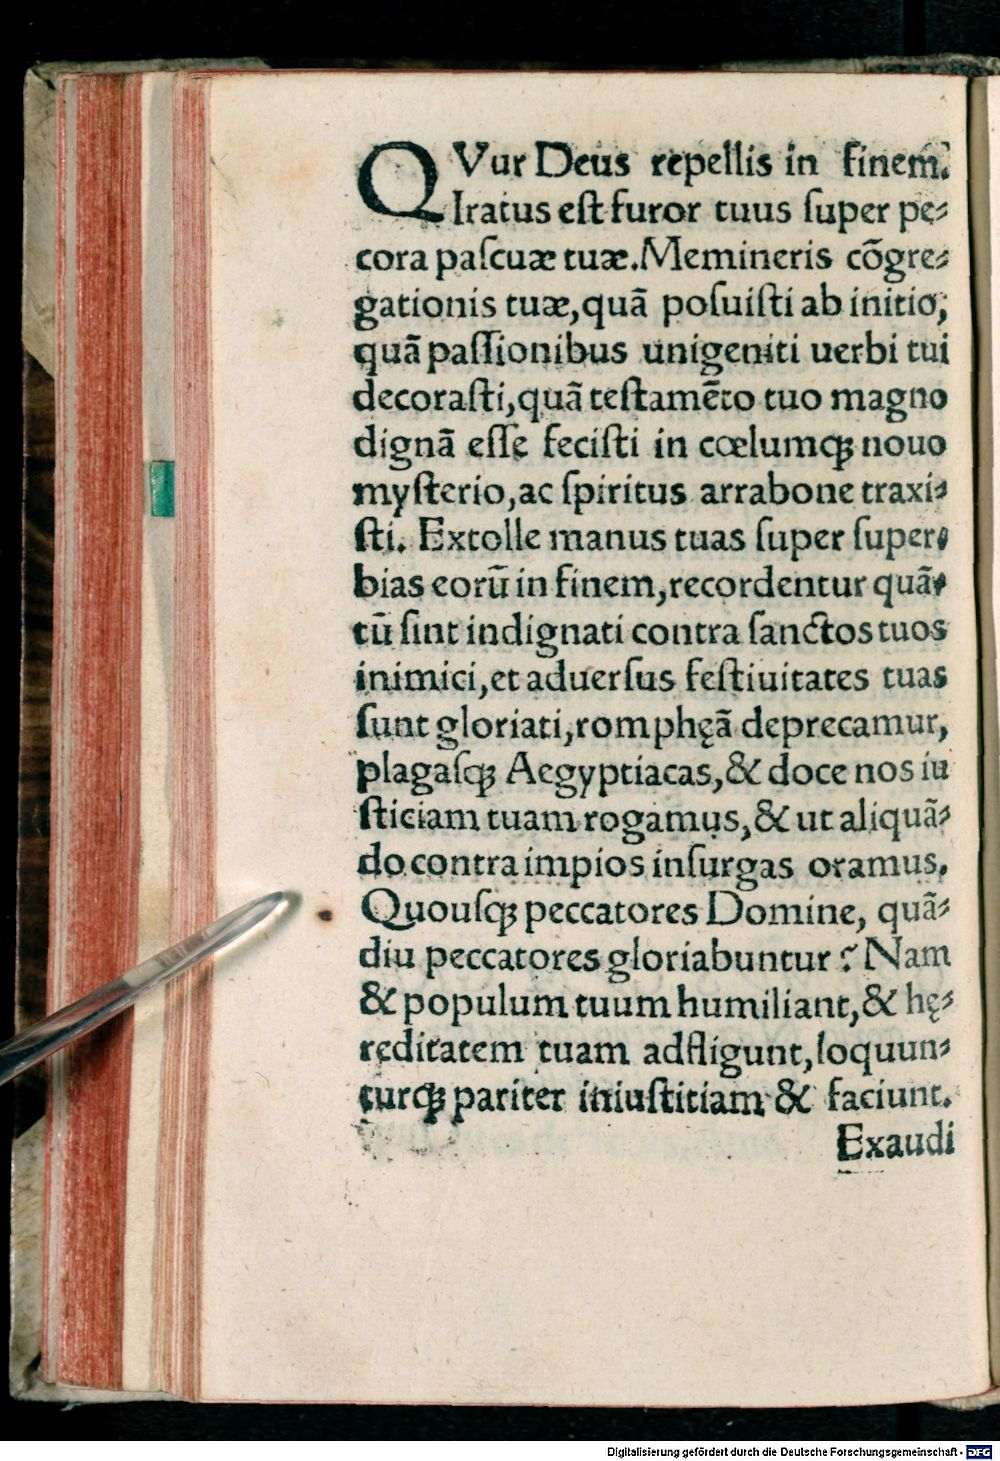 QVur Deus repellis in finem.
Iratus est furor tuus ſuper pe⸗
cora paſcuæ tuæ. Memineris cõgre⸗
gationis tuæ, quã poſuiſti ab initio,
quã paſſionibus unigeniti uerbi tui
decoraſti, quã teſtamẽto tuo magno
dignã eſſe feciſti in cœlumqꝫ nouo
myſterio, ac ſpiritus arrabone traxi⸗
ſti. Extolle manus tuas ſuper ſuper⸗
bias eorũ in finem, recordentur quã⸗
tũ ſint indignati contra ſanctos tuos
inimici, et aduerſus feſtiuitates tuas
ſunt gloriati, romphęã deprecamur,
plagaſqꝫ Aegyptiacas, & doce nos iu
ſticiam tuam rogamus, & ut aliquã⸗
do contra impios inſurgas oramus.
Quouſqꝫ peccatores Domine, quã⸗
diu peccatores gloriabuntur? Nam
& populum tuum humiliant, & hę⸗
reditatem tuam adfligunt, loquun⸗
turqꝫ pariter iniuſtitiam & faciunt.
Exaudi
Digitalisierung gefördert durch die Deutsche Forschungsgemeinschaft - DFG